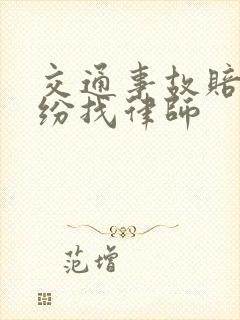 交通事故赔
纷找律师
范增